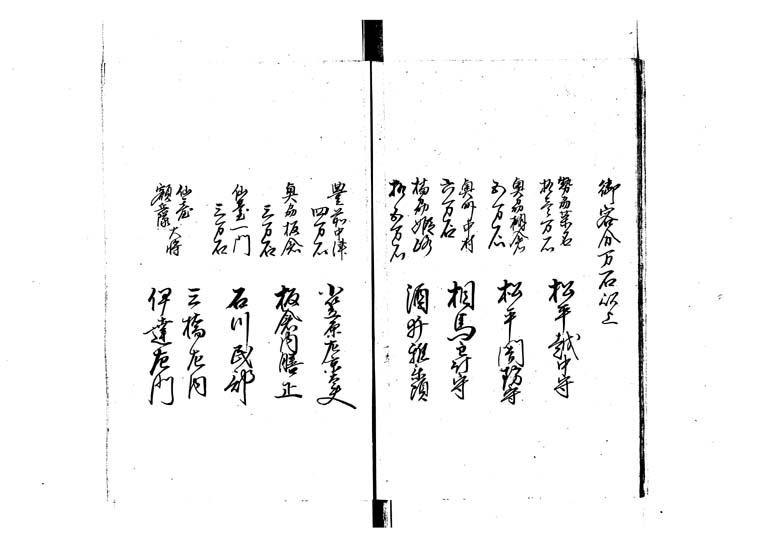 御客分万石以上
勢州桑名
拾壱万石
松平越中守
奥州棚倉
五万石
松平周防守
奥州中村
六万石
相馬
播州姫路
拾五万石
酒井雅楽頭
豊前中津
四万石
小笠原左京大夫
奥州板倉
三万石
板倉内膳正
仙台一門
三万石
石川民部
三橋左内
仙台
大将
伊達左門